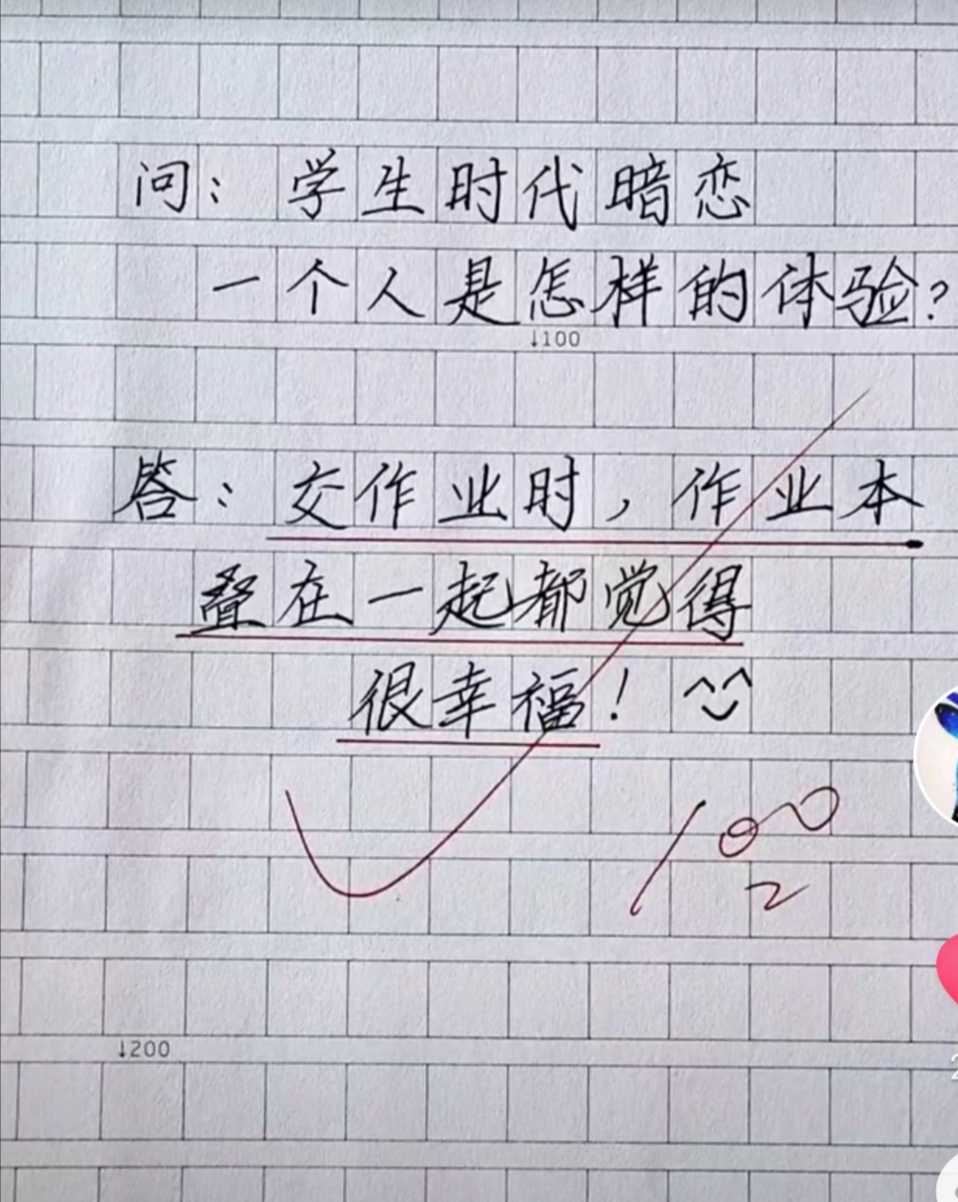 问：学生时代暗恋
一个人是怎样的体验？
↓100
答：交作业时，作业本
叠在一起都觉得
很幸福！
100
↓200